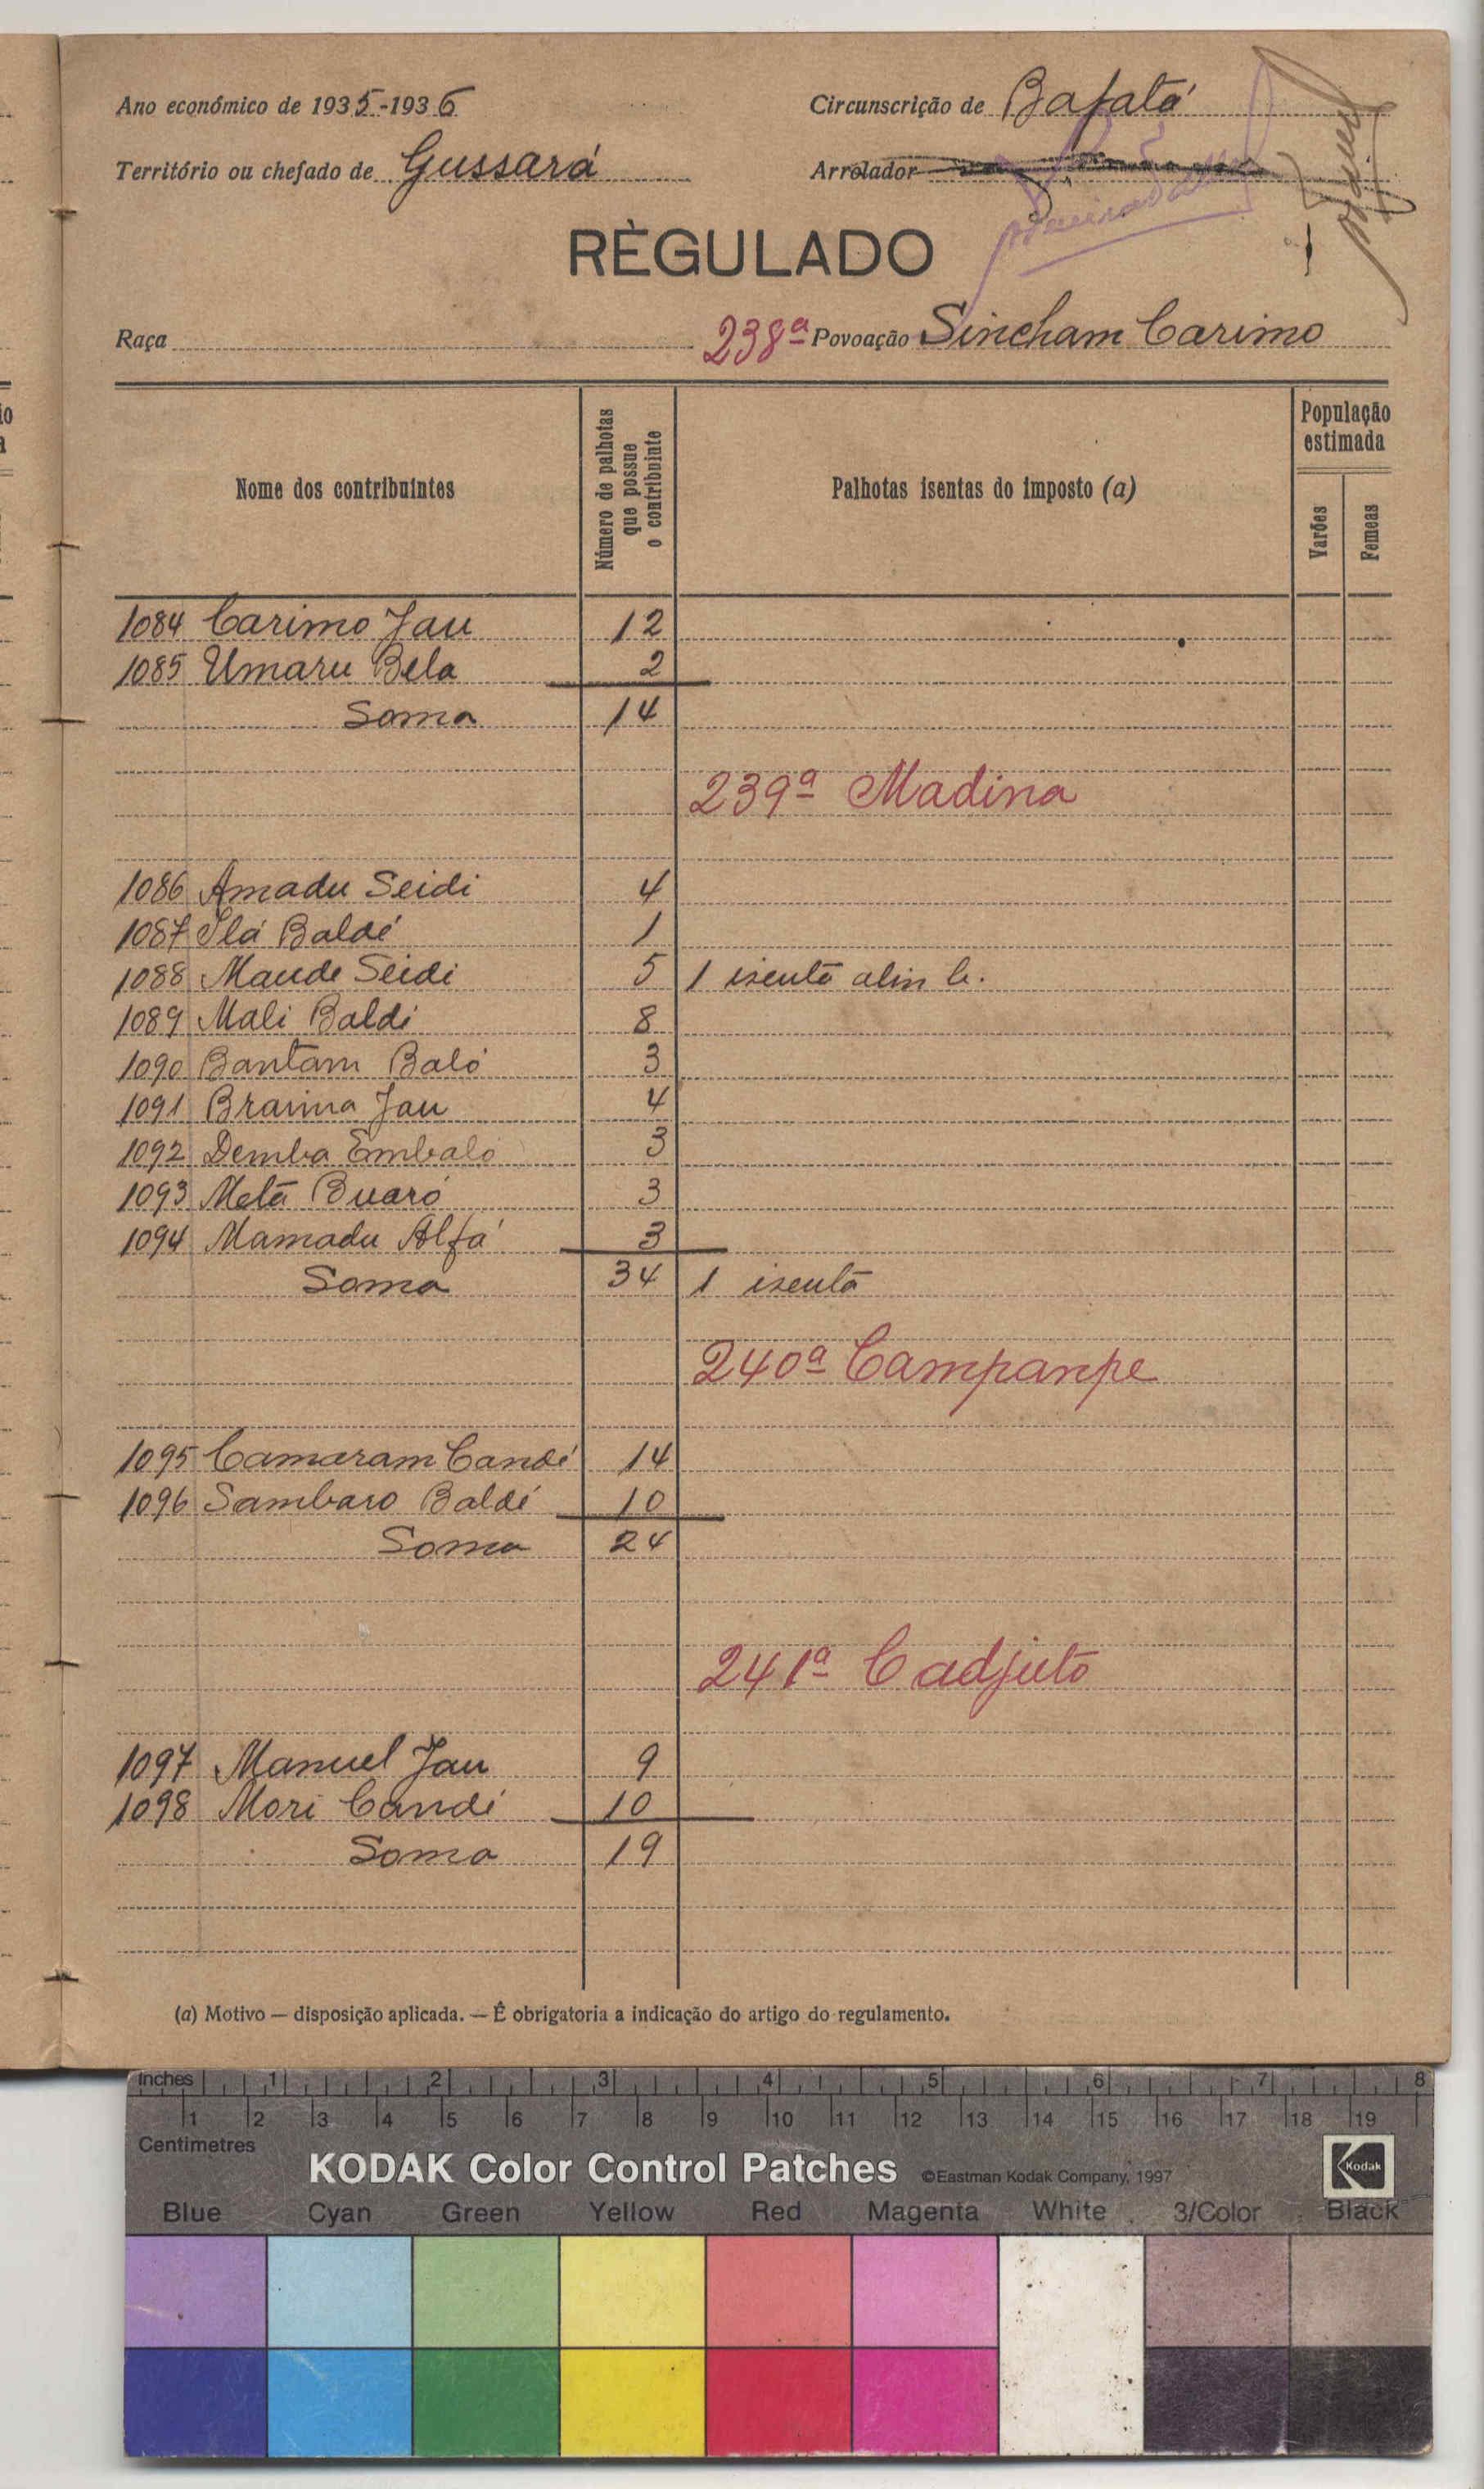 Ano económico de 1935-1936
Circunscrição de Bafatá
Território ou chefado de Gussará
Arrolador
RÈGULADO
Raça
238ª Povoação Sincham Carimo
Nome dos contribuintes
Número de palhotas que possue o contribuinte
Palhotas isentas do imposto (a)
População estimada
Varões
Femeas
1084 Carimo Jau 12
1085 Umaru Bela 2
Soma 14
239ª Madina
1086 Amadu Seidi 4
1087 Ilá Baldé 1
1088 Maude Seidi 5 1 isenta alin b.
1089 Mali Baldé 8
1090 Bantam Baló 3
1091 Braima Jau 4
1092 Demba Embaló 3
1093 Metá Buaró 3
1094 Mamadu Alfá 3
Soma 34 1 isenta
240ª Campanpe
1095 Camaram Candé 14
1096 Sambaro Baldé 10
Soma 24
241ª Cadjuto
1097 Manuel Jau 9
1098 Mori Candé 10
Soma 19
(a) Motivo — disposição aplicada. — É obrigatoria a indicação do artigo do regulamento.
Inches 1 2 3 4 5 6 7 8
1 2 3 4 5 6 7 8 9 10 11 12 13 14 15 16 17 18 19
Centimetres
KODAK Color Control Patches ©Eastman Kodak Company, 1997 Kodak
Blue Cyan Green Yellow Red Magenta White 3/Color Black